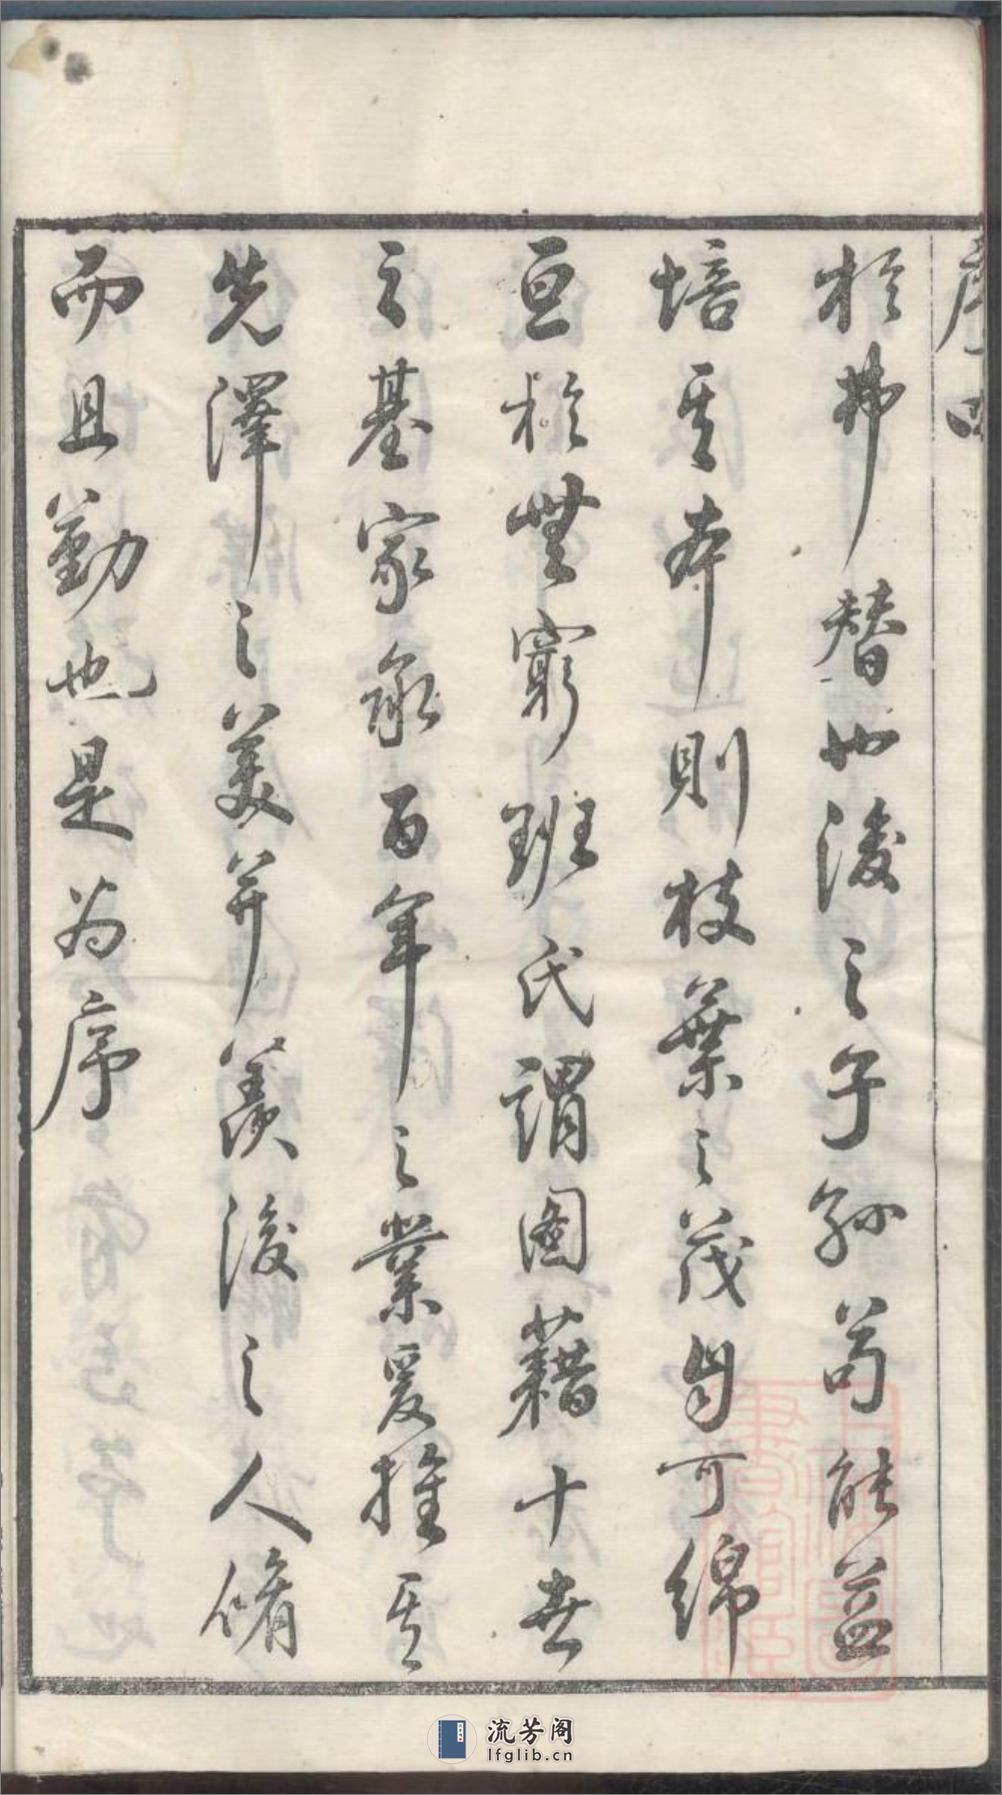 序四
於弗替也後之子孫苟能益
培其本則枝葉之茂自可綿
亘於無窮班氏謂國藉十世
之基家承百年之業爰推其
先澤之美并羨後之人脩
而且勤也是為序
流芳阁
lfglib.cn